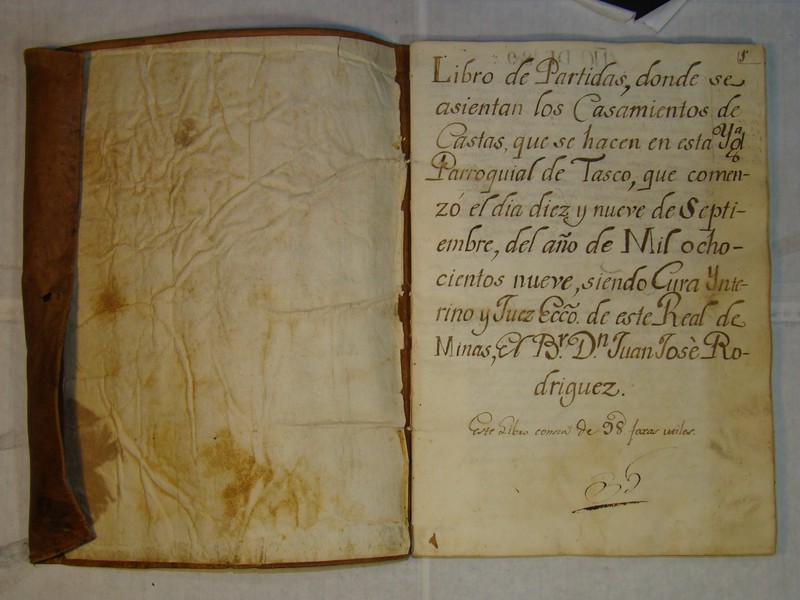 Libro de Partidas, donde se
asientan los Casamientos de
Castas, que se hacen en esta Yglª
Parroquial de Tasco, que comen-
zó el dia diez y nueve de Septi-
embre, del año de Mil ocho-
cientos nueve, siendo Cura Ynte-
rino y Juez Ecco. de este Real de
Minas, El Br. Dn. Juan Josè Ro-
driguez.
Este Libro consta de 98 foxas utiles.